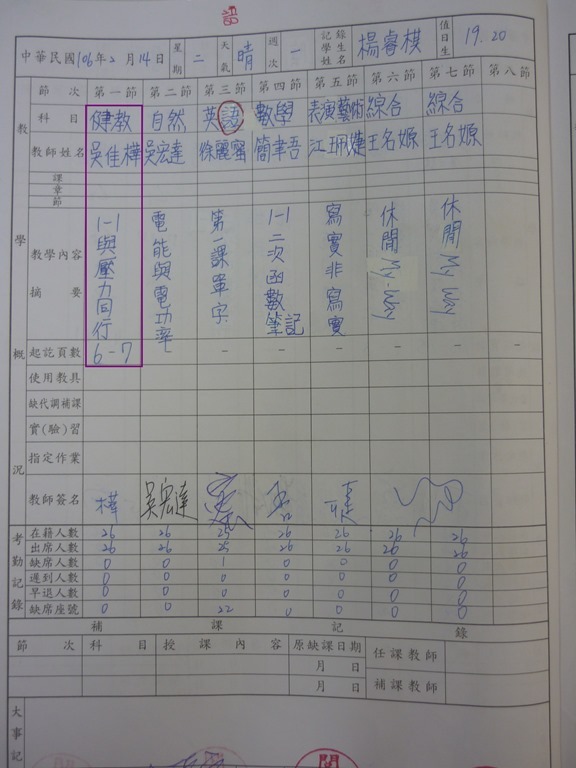 語
中華民國106年2月14日 星期 二 天氣 晴 週次 一 記錄學生姓名 楊睿棋 值日生 19.20
教學概況
節次 第一節 第二節 第三節 第四節 第五節 第六節 第七節 第八節
科目 健教 自然 英語 數學 表演藝術 綜合 綜合
教師姓名 吳佳樺 吳宏達 徐麗蜜 簡聿吾 江珮婕 王名嫄 王名嫄
課
章
節
教學內容摘要 1-1與壓力同行 電能與電功率 第一課單字 1-1二次函數筆記 寫實非寫實 休閒My Way 休閒My Way
起訖頁數 6-7 - - - - - -
使用教具
缺代調補課
實(驗)習
指定作業
教師簽名 樺 吳宏達
考勤記錄
在籍人數 26 26 25 26 26 26 26
出席人數 26 26 25 26 26 26 26
缺席人數 0 0 1 0 0 0 0
遲到人數 0 0 0 0 0 0 0
早退人數 0 0 0 0 0 0 0
缺席座號 0 0 22 0 0 0 0
補課記錄
節次 科目 授課內容 原缺課日期 任課教師
月 日
月 日 補課教師
大事記
閱